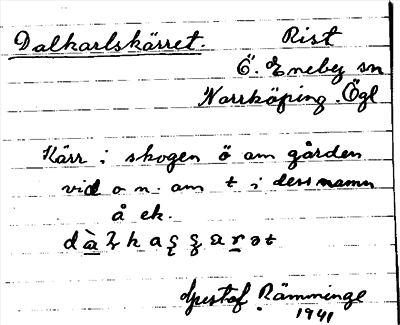 Dalkarlskärret. Rist
Ö. Eneby sn
Norrköping. Ögl
Kärr i skogen ö om gården
vid o n. om t i dess namn
å ek.
Gustof Rämminge
1941